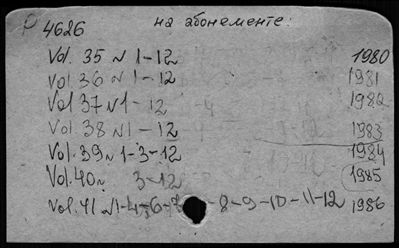 P 4626 на абонементе:
Vol. 35 N 1-12 1980
Vol 36 N 1-12 1981
Vol 37 N1-12 1982
Vol. 38 N1-12 1983
Vol. 39 N 1-3-12 1984
Vol. 40 N 3-12 1985
Vol. 41 N1-4-6-7-8-9-10-11-12 1986